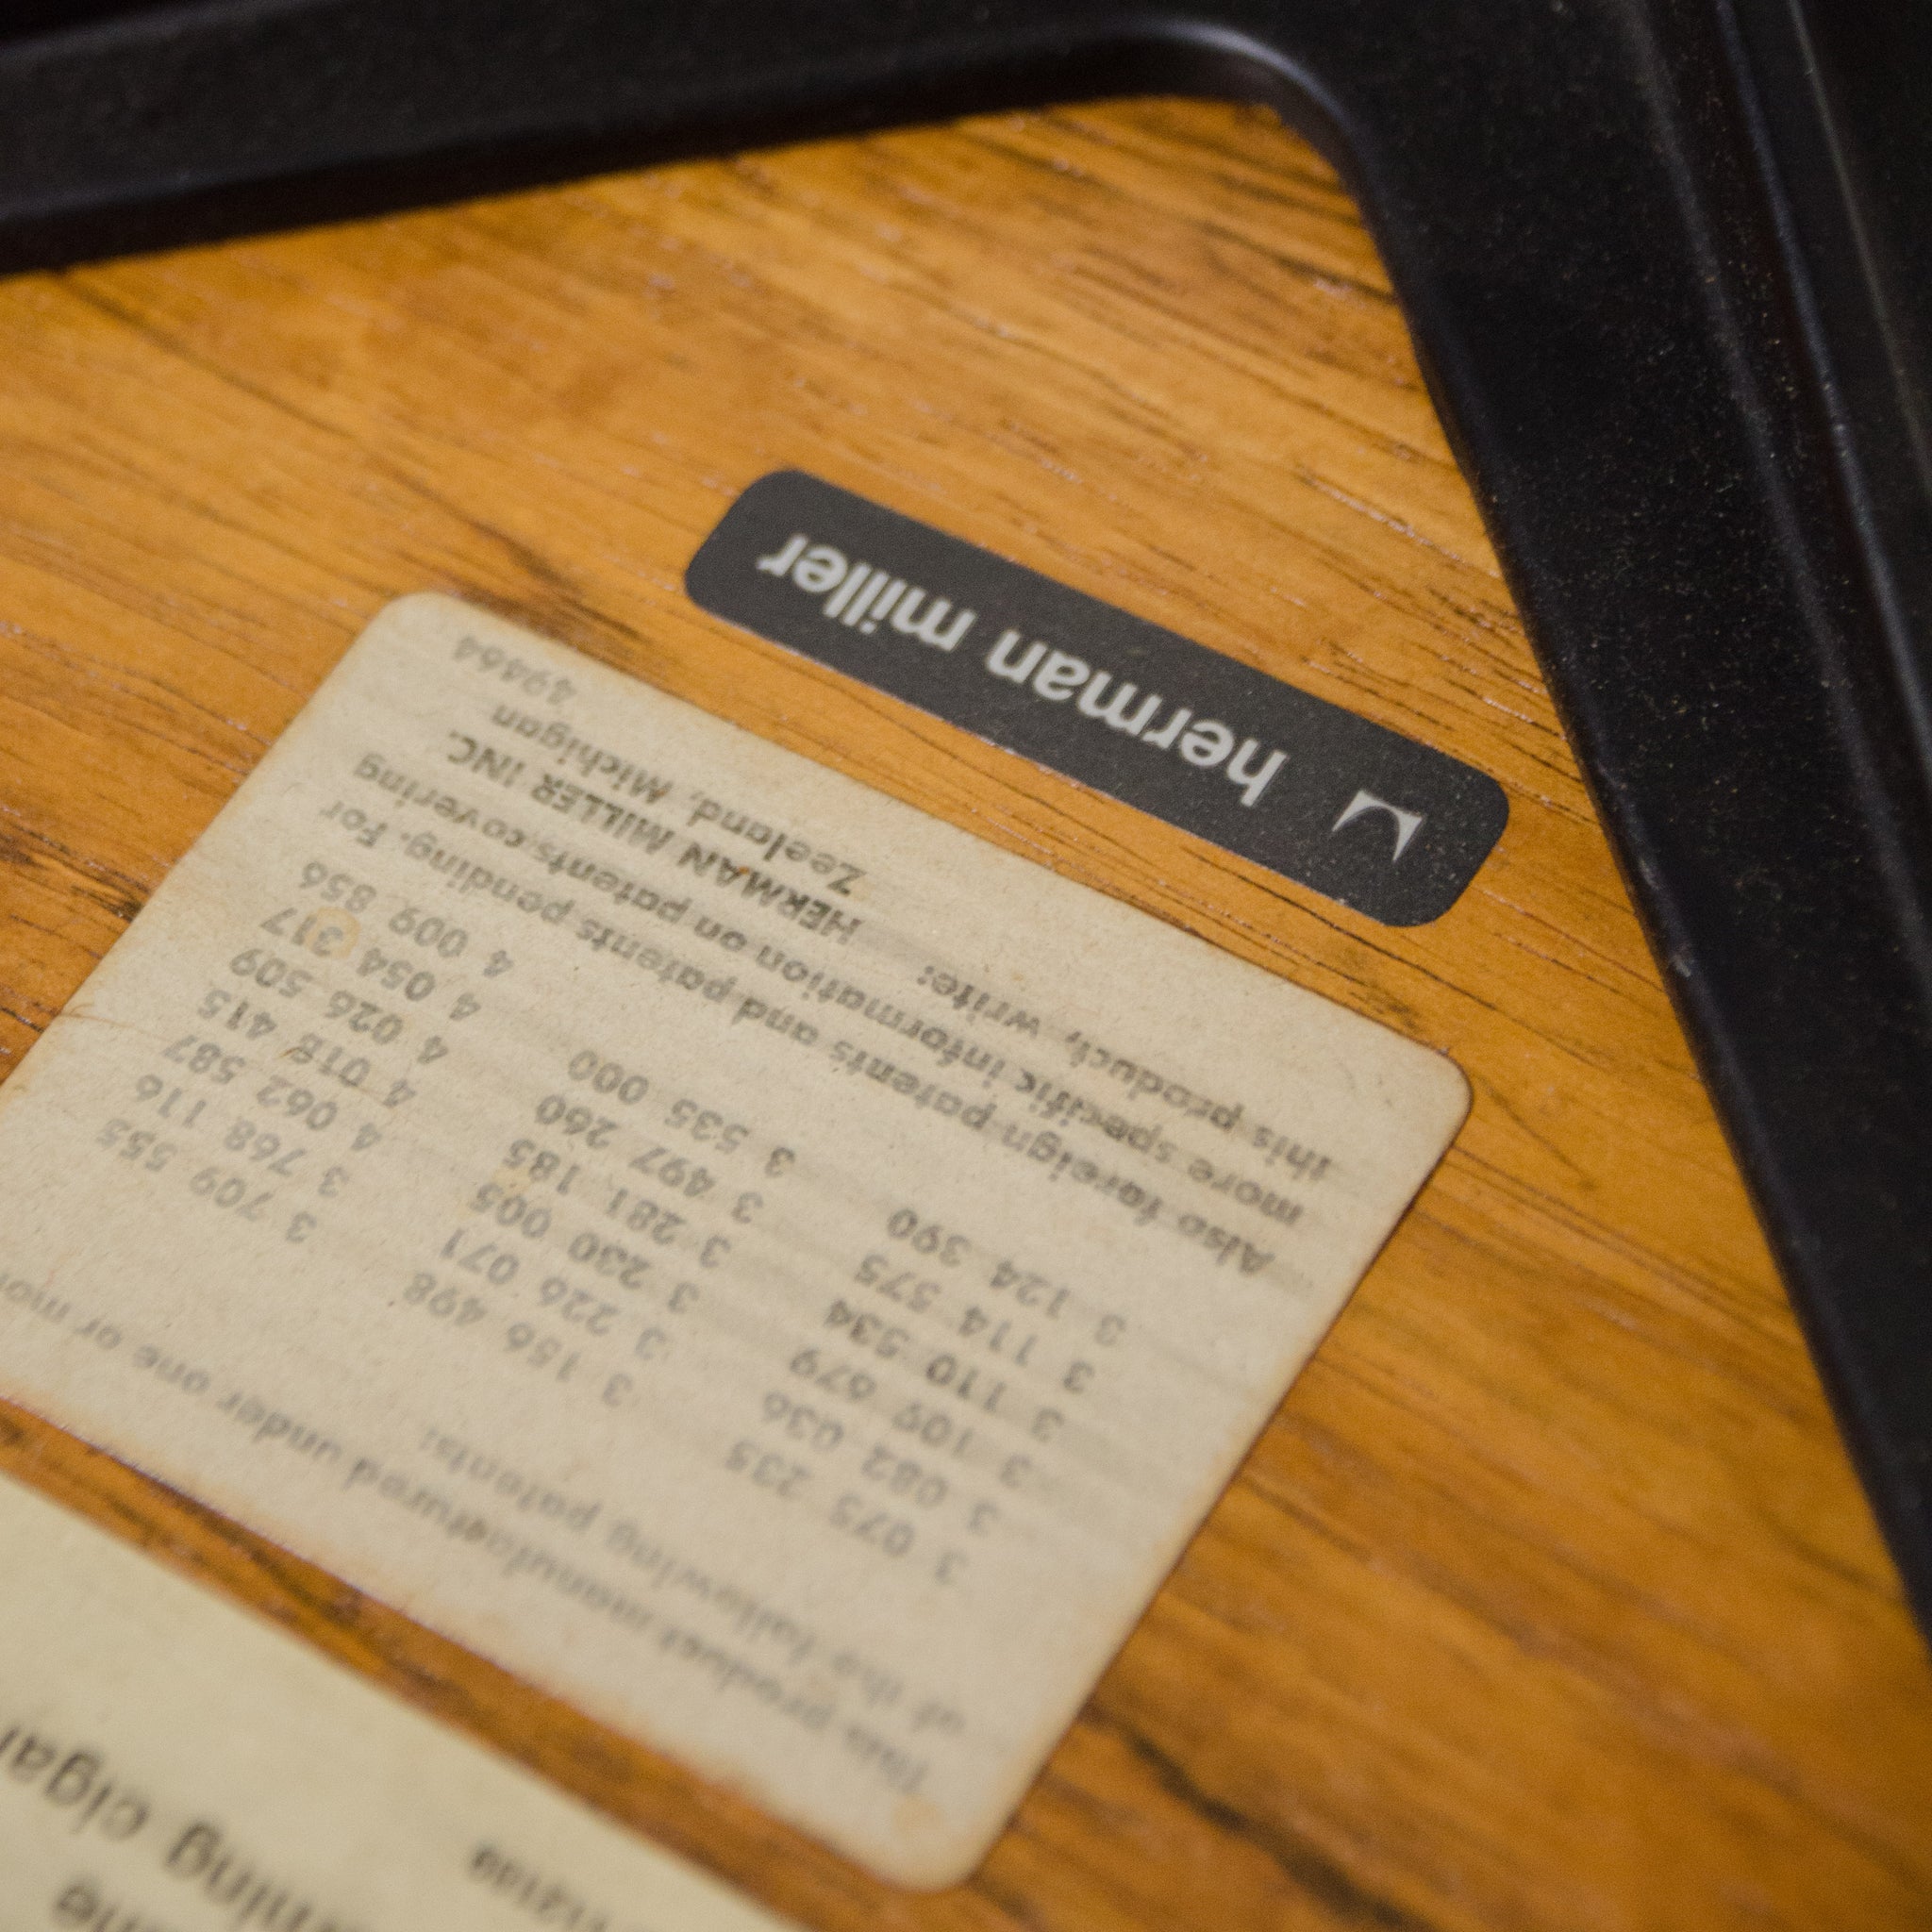 ning cigar
This product manufactured under one or mor
of the following patents:
3 075 235 3 156 498 3 709 555
3 082 036 3 226 071 3 768 116
3 109 679 3 230 005 4 062 587
3 110 334 3 281 185 4 018 415
3 114 575 3 497 260 4 026 509
3 124 390 3 535 000 4 054 317
4 009 856
Also foreign patents and patents pending. For
more specific information on patents covering
this product, write:
HERMAN MILLER INC.
Zeeland, Michigan
49464
herman miller